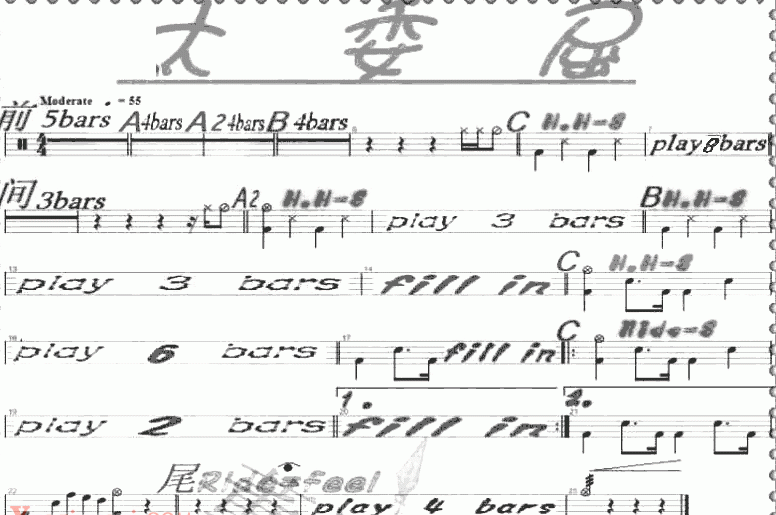 太委屈
Moderate ♩ = 55
前 5bars A 4bars A 2 4bars B 4bars C H.H=8 play 8 bars
间 3bars A2 H.H=8 play 3 bars B H.H=8
13 play 3 bars 14 fill in C H.H=8
16 play 6 bars 17 fill in C Ride=8
19 play 2 bars 1. 20 fill in 2. 21
尾 Ride=feel
22 play 4 bars 25